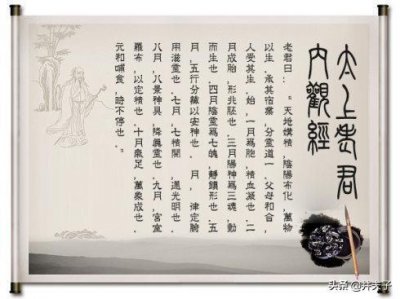 太上老君
內觀經
老君曰：。天地媾精，陰陽布化，萬物
以生，承其宿業，分靈道一，父母和合，
人受其生，始，一月為胞，精血凝也．二
月成胎，形兆胚也．三月陽神為三魂，動
而生也．四月陰靈為七魄，靜鎮形也．五
月，五行分藏以安神也．月，律定腑
用滋靈也．七月，七精開，通光明也．
八月，八景神具，降真靈也．九月，宮室
羅布，以定精也．十月氣足，萬象成也．
元和哺食，時不停也．
头条 @井夫子